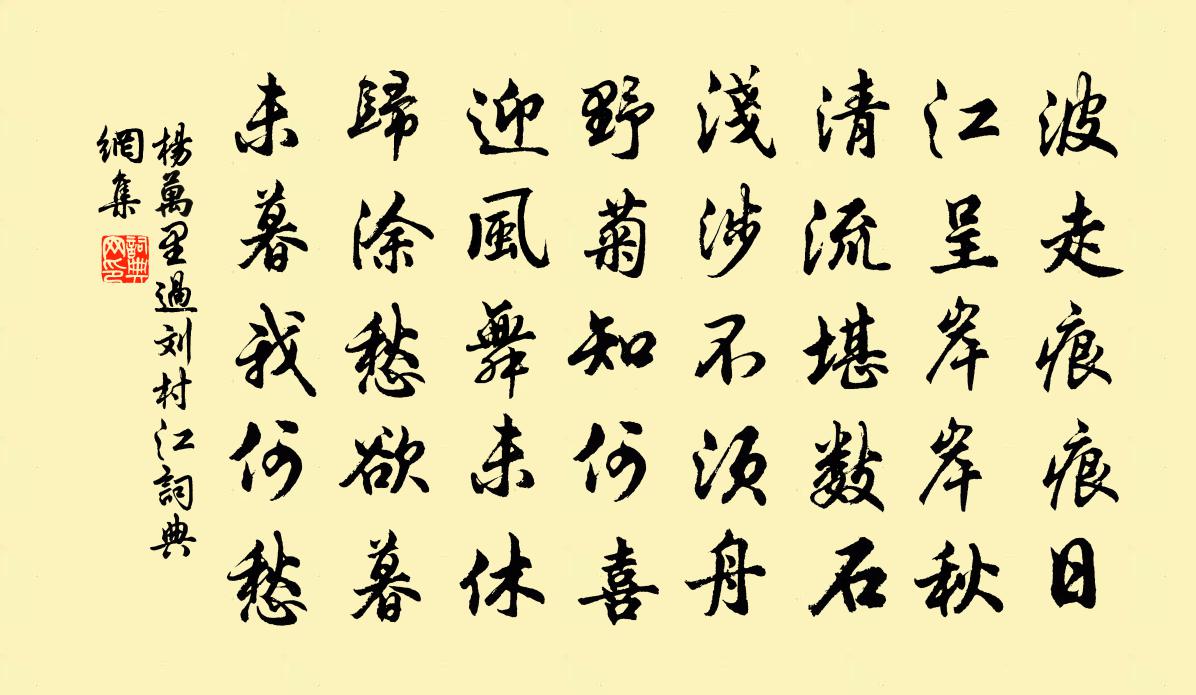 波走痕痕日
江呈岸岸秋
清流堪數石
淺涉不須舟
野菊知何喜
迎風舞未休
歸途愁欲暮
未暮我何愁
楊萬里過刘村江詞典
網集
詞典
网印